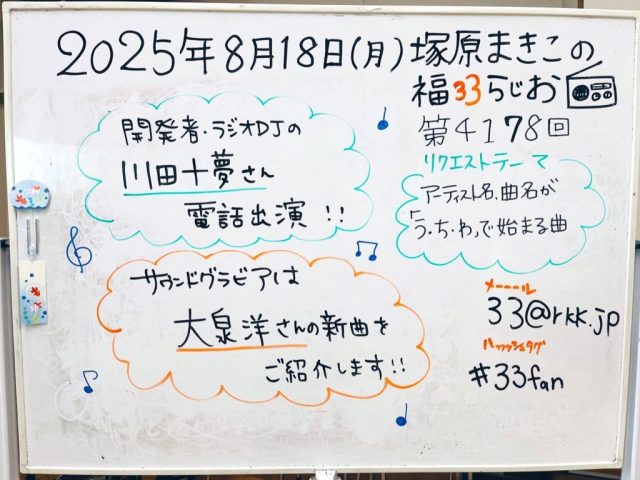 2025年8月18日(月)塚原まきこの
福33らじお
第4178回
開発者・ラジオDJの
川田十夢さん
電話出演!!
リクエストテーマ
アーティスト名、曲名が
「う・ち・わ」で始まる曲
サウンドグラビアは
大泉洋さんの新曲を
ご紹介します!!
メーーール
33@rkk.jp
ハッッシュタグ
#33fan